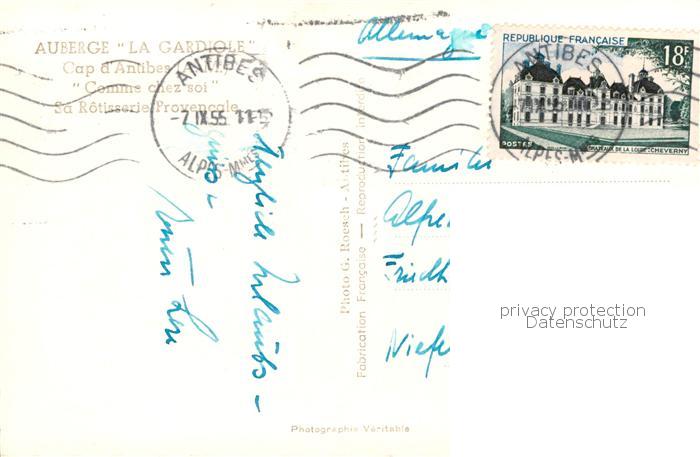 AUBERGE "LA GARDIOLE"
Cap d'Antibes
"Comme chez soi"
Sa Rôtisserie Provençale
ANTIBES
-7 IX 55
ALPES-Mmes
Allemagne
REPUBLIQUE FRANÇAISE
18F
ANTIBES
ALPES-M
POSTES
CHATEAUX DE LA LOIRE: CHEVERNY
Herzliche Urlaubs-
grüsse
Photo G. Roesch - Antibes
Fabrication Française — Reproduction interdite
Familie
Alfre
Friedh
Niefe
privacy protection
Datenschutz
Photographie Véritable